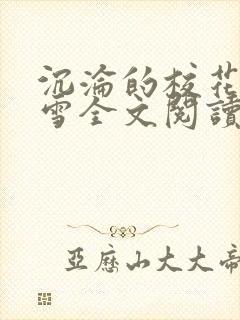 沉淪的校花
雪全文閱讀
亞歷山大大帝